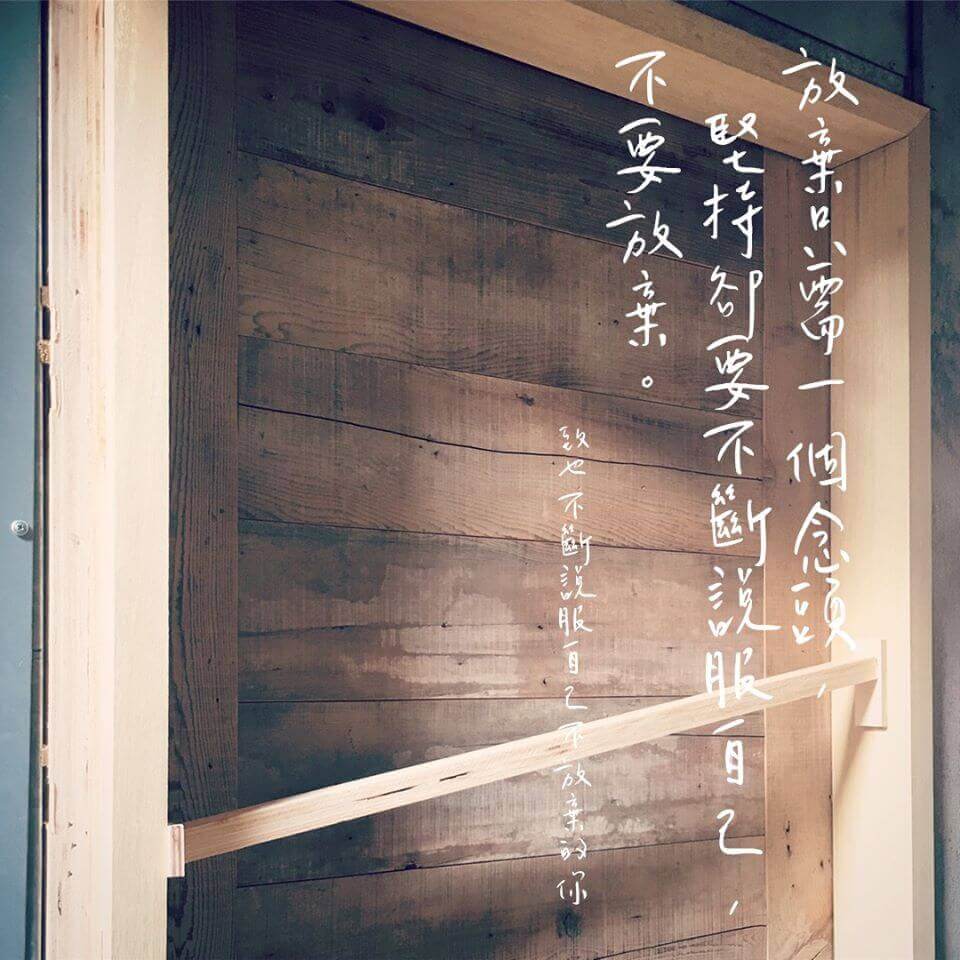 放棄只需一個念頭，
堅持卻要不斷說服自己，
不要放棄。
致也不斷說服自己不放棄的你